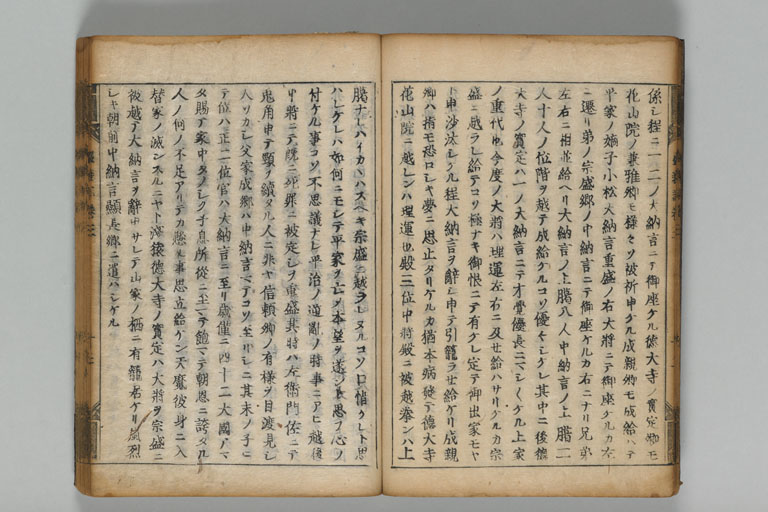 係シ程ニ一二ノ大納言ニテ御座ケル徳大寺ノ實定卿モ
花山院ノ兼雅卿モ様々ニ被祈申ケル成親卿モ成給ハテ
平家ノ嫡子小松大納言重盛ノ右大將ニテ御座ケルカ左
ニ遷リ弟ノ宗盛卿ノ中納言ニテ御座ケルカ右ニナリ兄弟
左右ニ相並給ヘリ大納言ノ上臈八人中納言ノ上臈二
人十人ノ位階ヲ越テ成給ケルコソ優々シケレ其中ニ後徳
大寺ノ實定ハ一ノ大納言ニテ才覺優長ニマシ〱ケル上家
ノ重代也今度ノ大將ハ理運左右ニ及セ給ハサリケルカ宗
盛ニ越ラレ給テコソ極ナキ御恨ニテ有ケレ定テ御出家モヤ
ト申沙汰シケル程大納言ヲ辭シ申テ引籠ラセ給ケリ成親
卿ハ指モ恐ロシキ夢ニ思止タリケルカ猶本病發テ徳大寺
花山院ニ越レンハ理運也殿三位中將殿ニ被越奉ンハ上
臈ナレハイカヽハスヘキ宗盛ニ越ラレヌルコソ口惜ケレト思
ハレケレハ如何ニモシテ平家ヲ亡シ本望ヲ遂ント思フ心ノ
付ケル事コソ不思議ナレ平治ノ逆亂ノ時事ニアヒ越後
中將ニテ既ニ死罪ニ被定シヲ重盛其時ハ左衛門佐ニテ
兎角申テ頸ヲ續タル人ニ非ヤ信頼卿ノ有様ヲ目渡見シ
人ソカシ父家成卿ハ中納言マテコソ至リシニ其末ノ子ニ
テ位ハ正二位官ハ大納言ニ至リ歳僅ニ四十二大國アマ
タ賜テ家中タノシク子息所從ニ至マテ飽マテ朝恩ニ誇タル
人ノ何ノ不足アリテカ懸ル事思立給ケン天魔彼身ニ入
替家ノ滅ンスルニヤト
徳大寺ノ實定ハ大將ヲ宗盛ニ
被越テ大納言ヲ辭申サレテ山家ノ栖ニ有籠者ケリ
シキ朝前中納言顯長卿ニ遣ハシケル